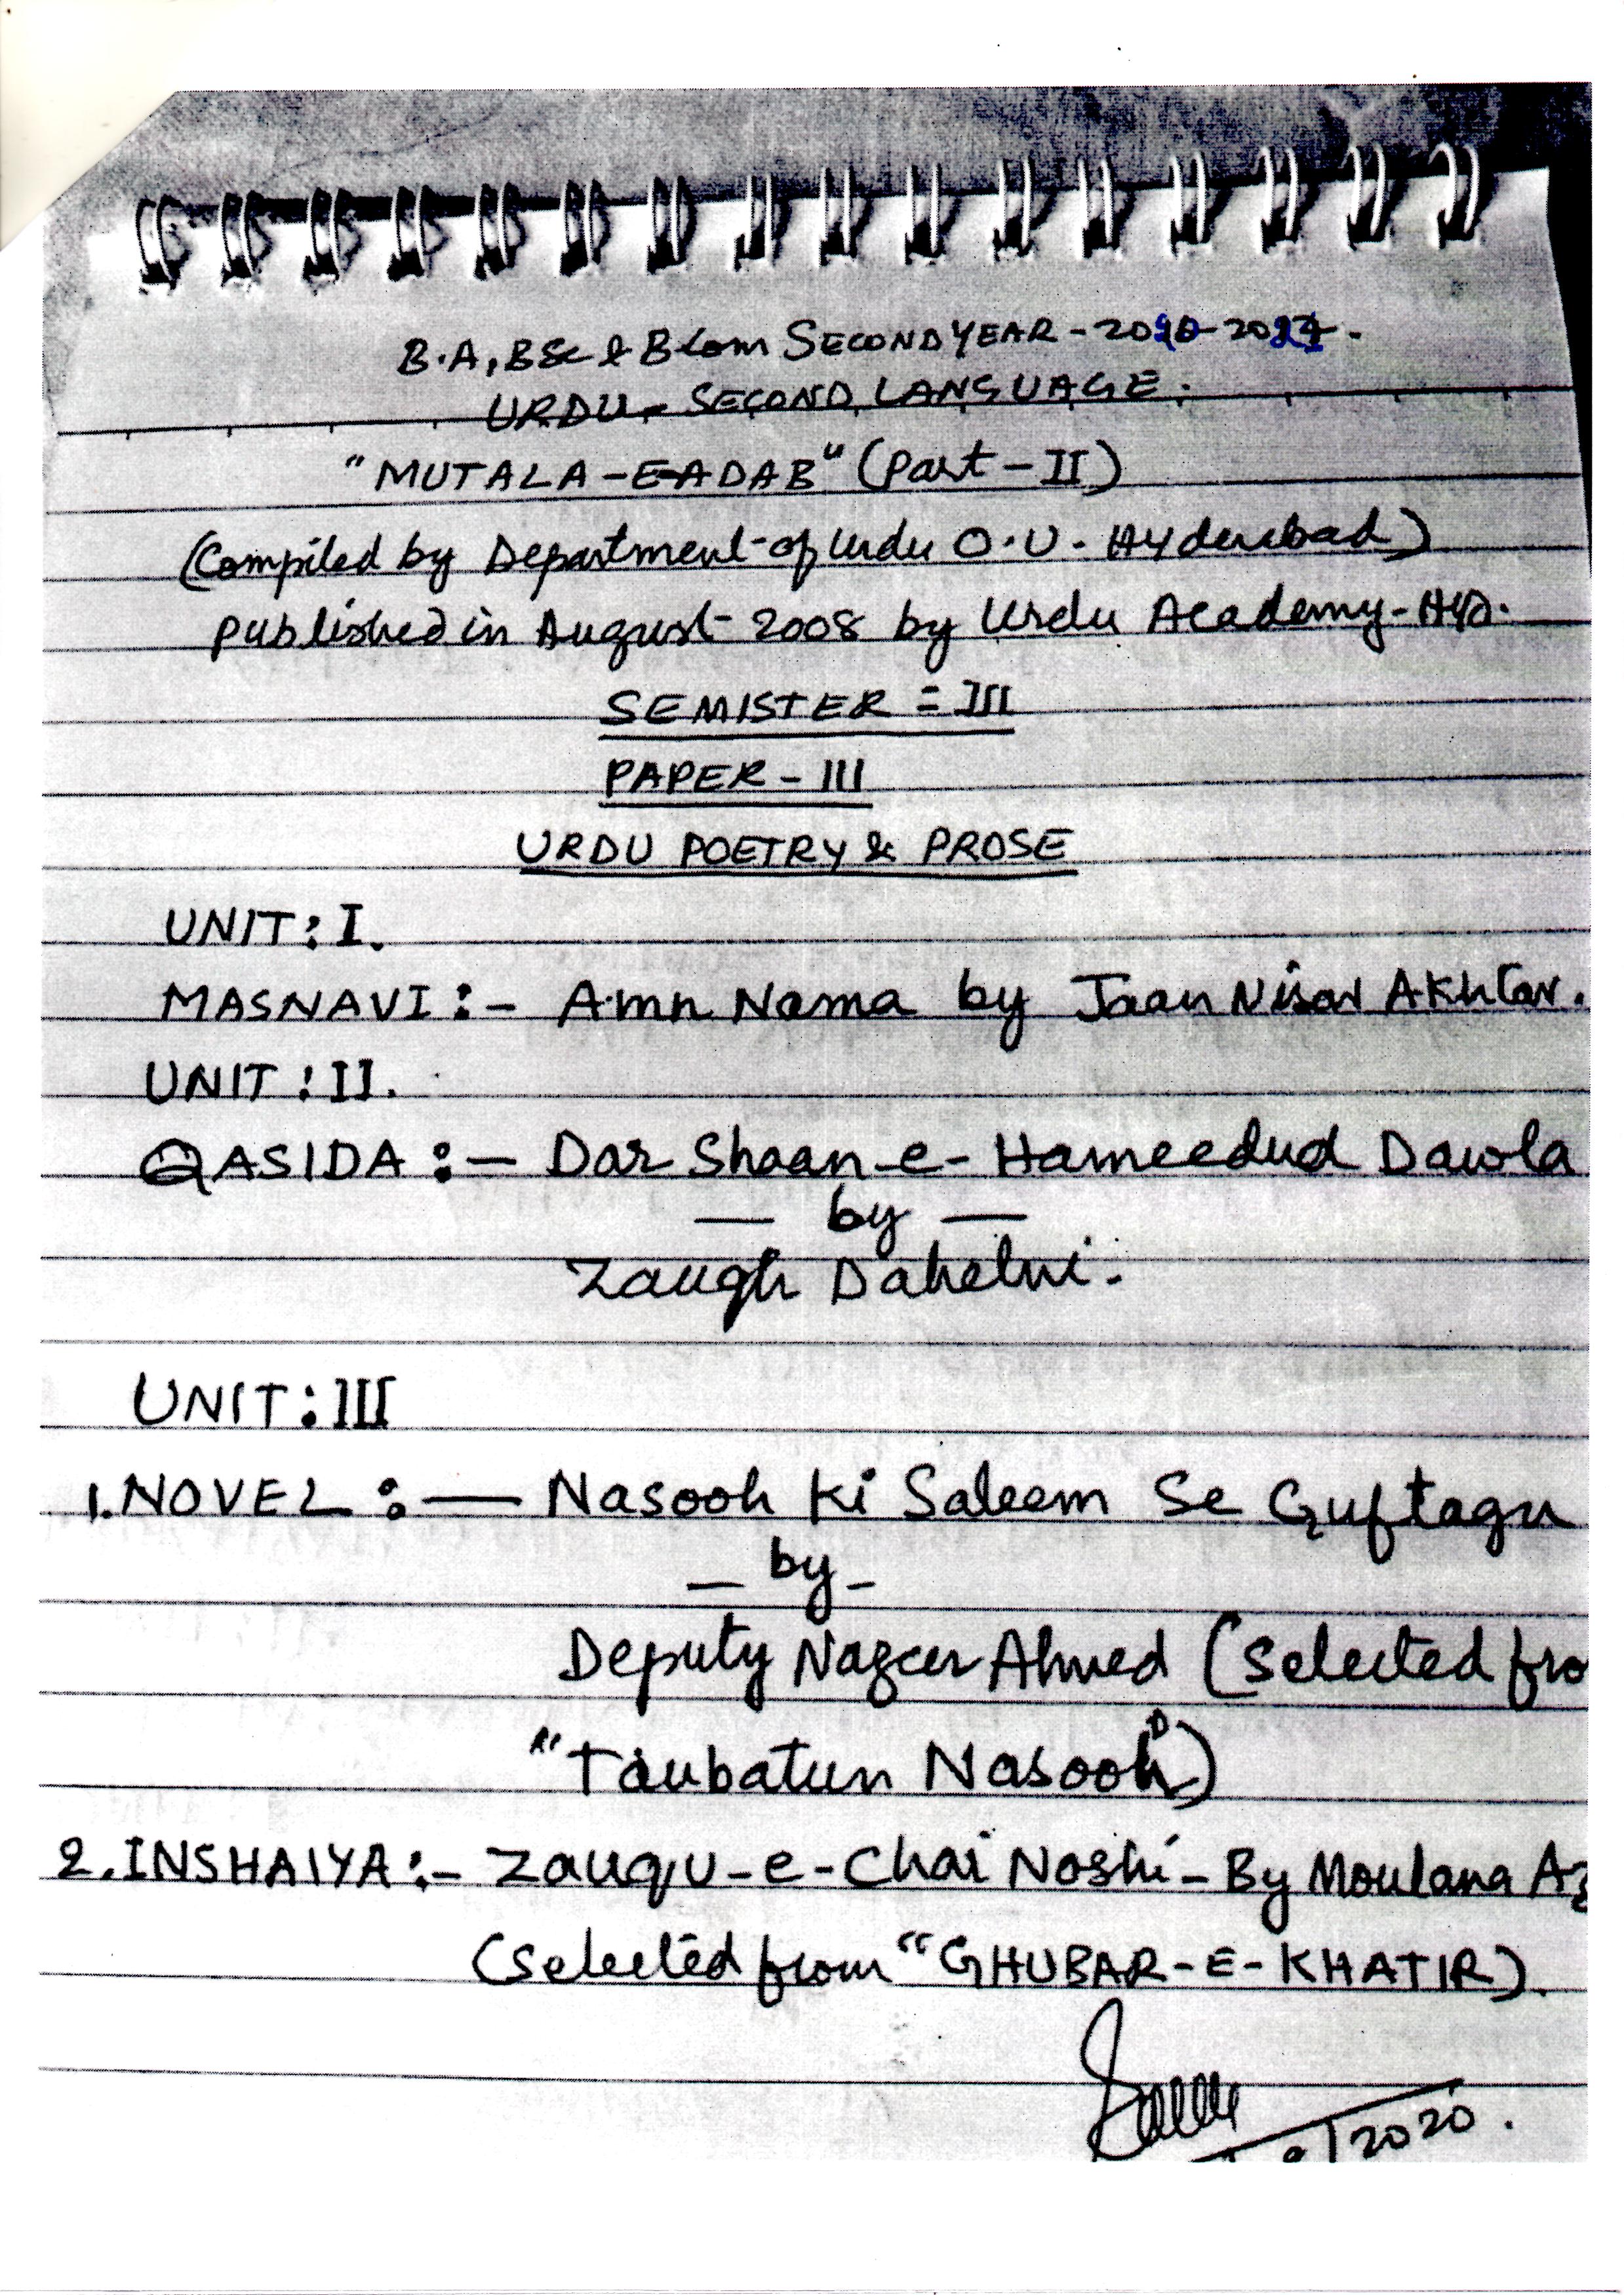 B.A, BSc & BCom SECOND YEAR - 2020-2021.
URDU - SECOND LANGUAGE.
"MUTALA-E-ADAB" (Part-II)
(Compiled by Department of Urdu O.U. Hyderabad)
published in August 2008 by Urdu Academy-Hyd.
SEMISTER = III
PAPER - III
URDU POETRY & PROSE
UNIT: I.
MASNAVI :- Amn Nama by Jaan Nisar AKhtar.
UNIT : II.
QASIDA :- Dar Shaan-e-Hameedud Dawla
— by —
Zaugh Dahelvi.
UNIT: III
1. NOVEL :— Nasooh Ki Saleem Se Guftagu
— by -
Deputy Nazeer Ahmed (Selected fro
"Taubatun Nasooh")
2. INSHAIYA:- Zauqu-e-Chai Noshi - By Moulana Az
(Selected from "GHUBAR-E-KHATIR).
/2020.